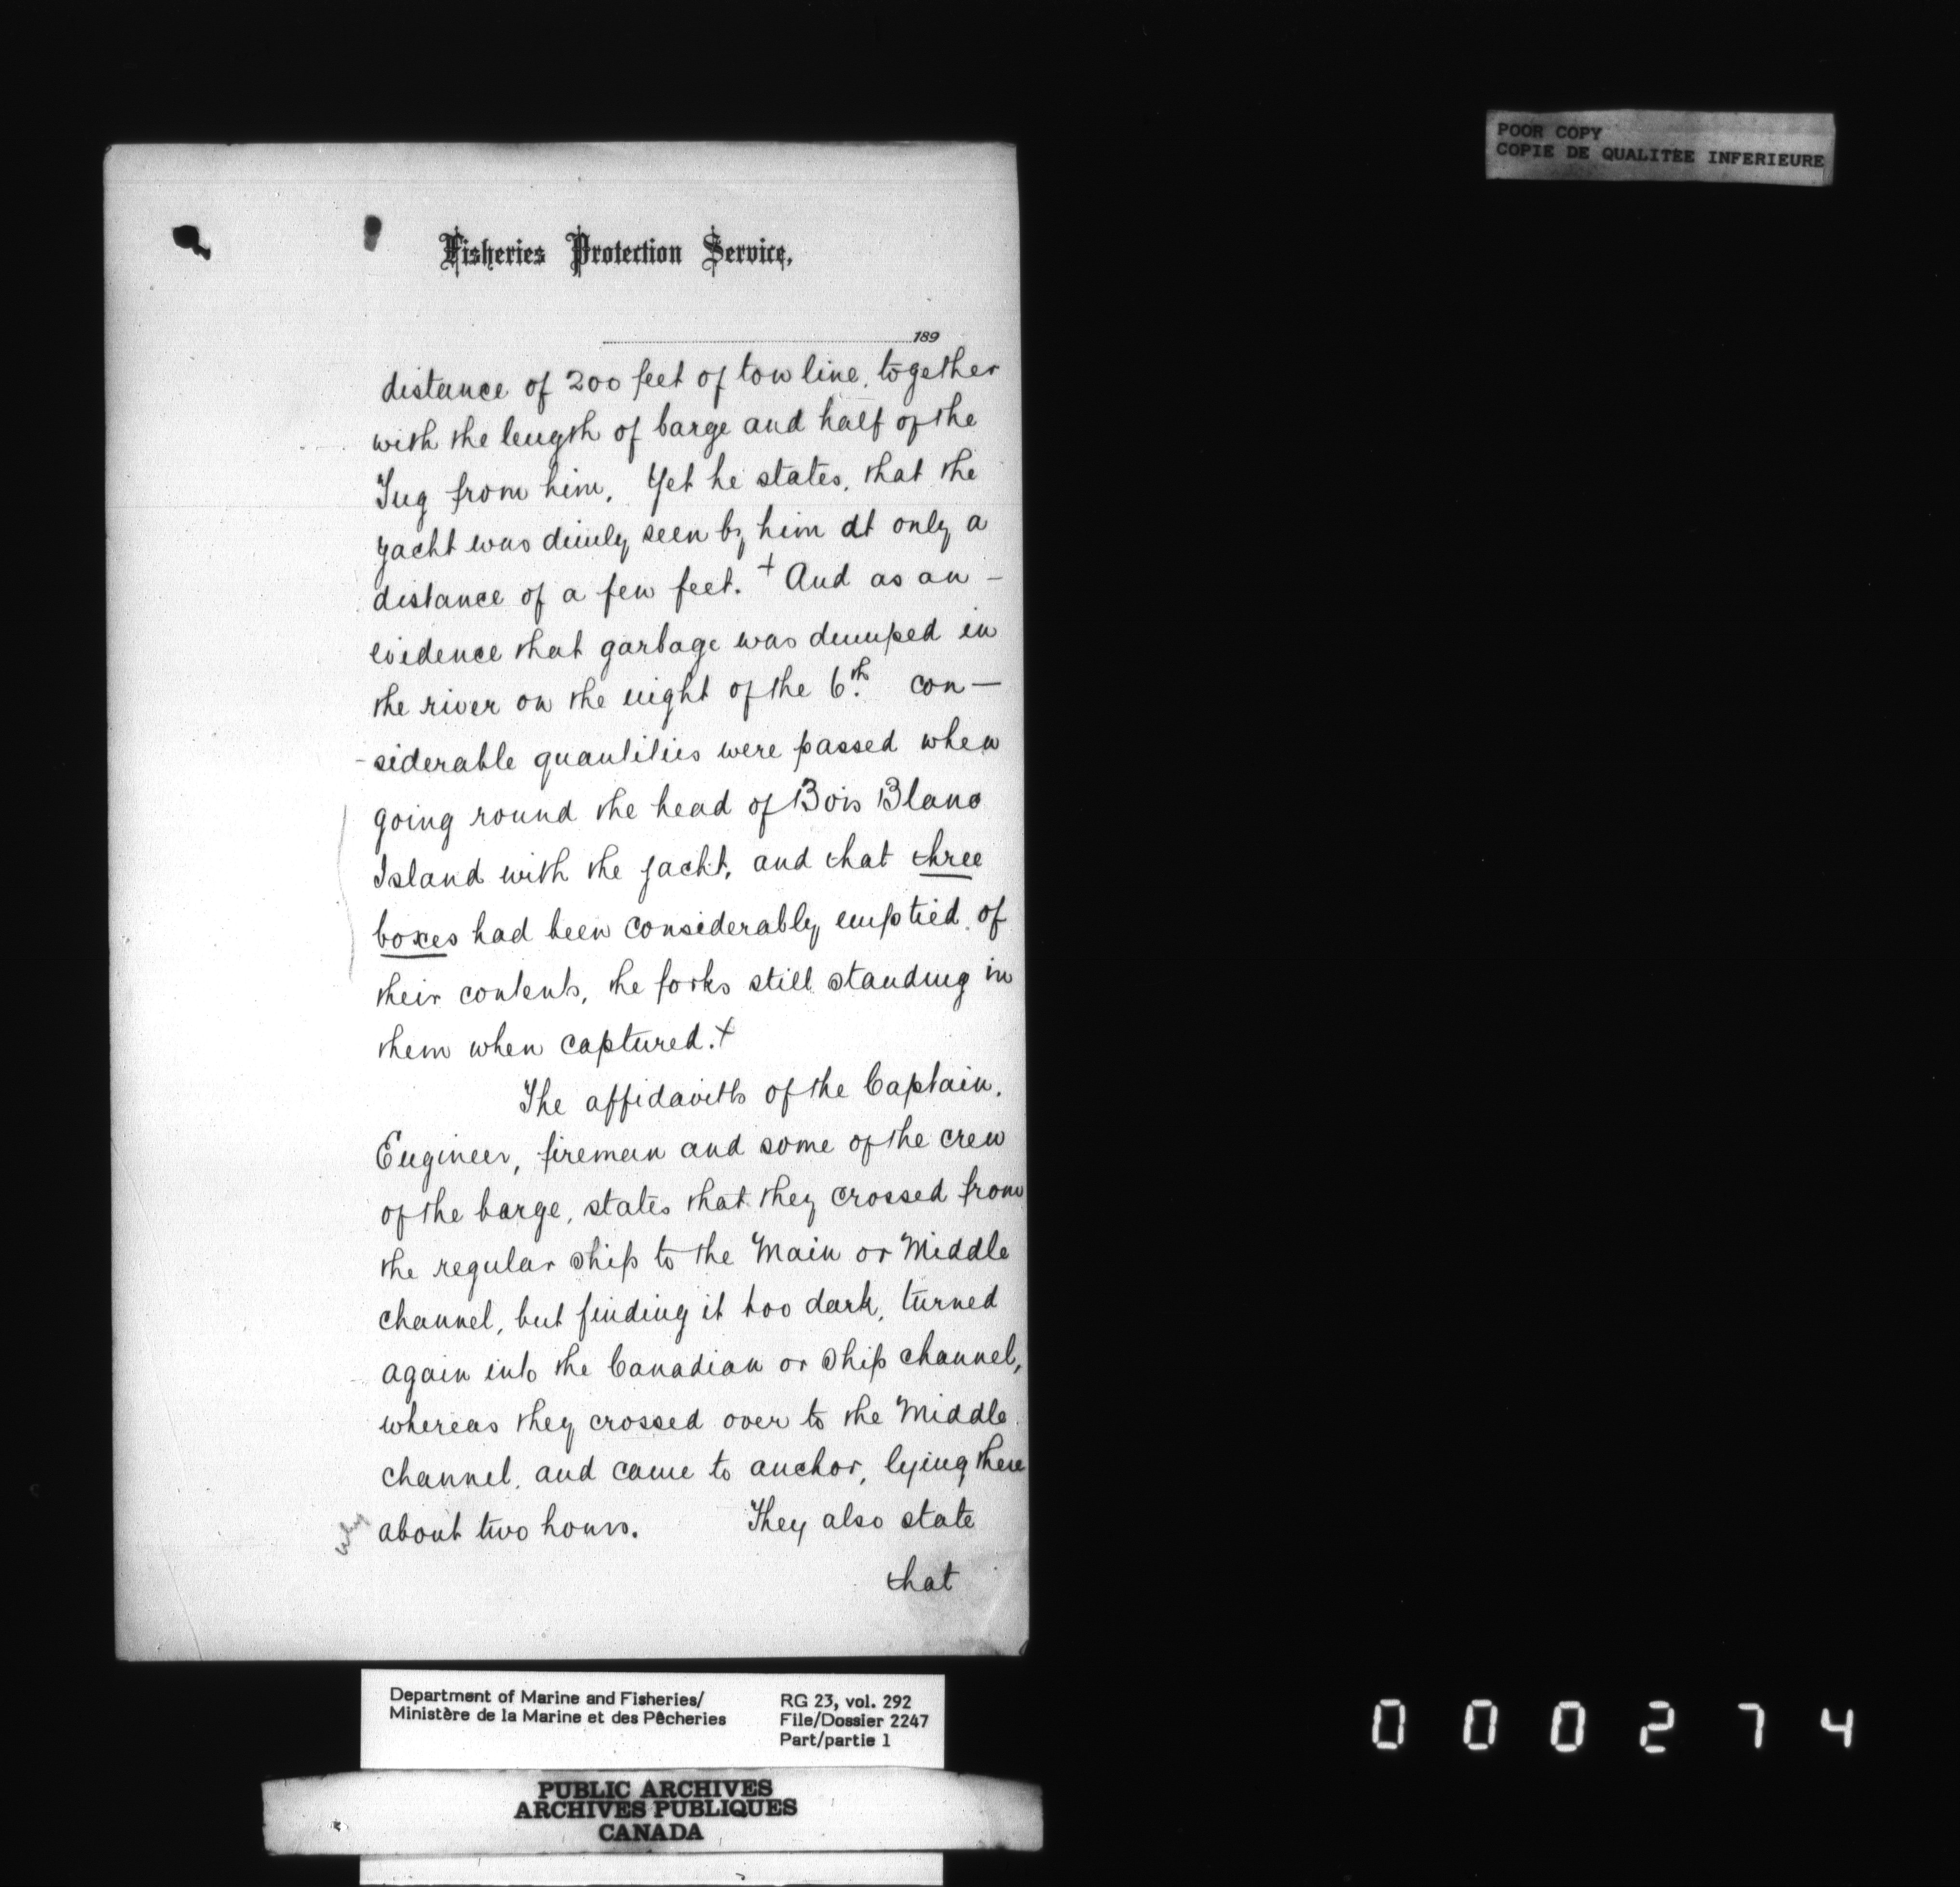 POOR COPY
COPIE DE QUALITEE INFERIEURE
Fisheries Protection Service,
189
distance of 200 feet of tow line, together
with the length of barge and half of the
Tug from him. Yet he states, that the
yacht was dimly seen by him at only a
distance of a few feet. + And as an -
evidence that garbage was dumped in
the river on the night of the 6th. con-
-siderable quantities were passed when
going round the head of Bois Blanc
Island with the yacht, and that three
boxes had been considerably emptied of
their contents, the forks still standing in
them when captured.+
The affidavitts of the Captain,
Engineer, fireman and some of the crew
of the barge, states that they crossed from
the regular ship to the Main or Middle
channel, but finding it too dark, turned
again into the Canadian or Ship channel,
whereas they crossed over to the Middle
channel, and came to anchor, lying there
why
about two hours. They also state
that
Department of Marine and Fisheries/
Ministère de la Marine et des Pêcheries
RG 23, vol. 292
File/Dossier 2247
Part/partie 1
PUBLIC ARCHIVES
ARCHIVES PUBLIQUES
CANADA
000274